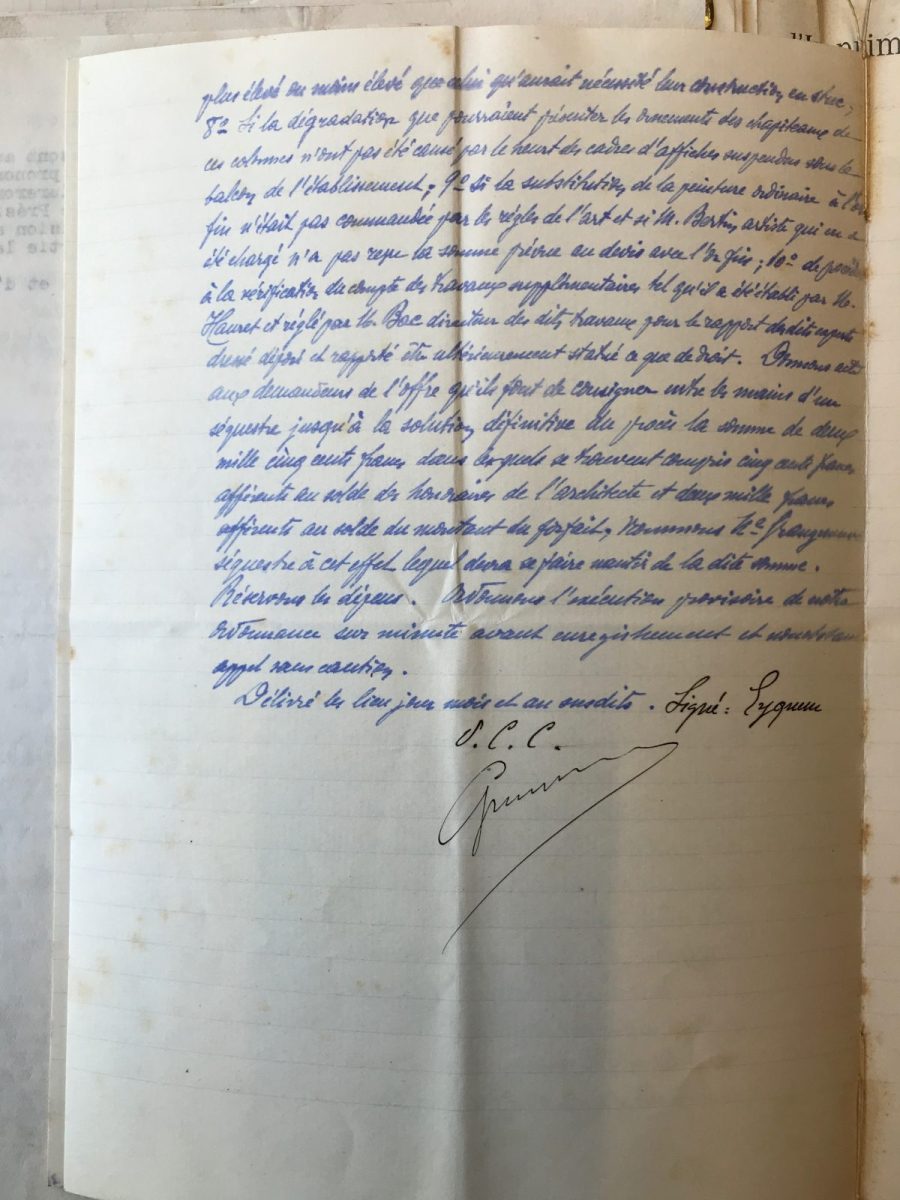 d'Imprim
plus élevé ou moins élevé que celui qu'aurait nécessité leur construction en stuc;
8° Si la dégradation que pourraient présenter les ornements des chapiteaux de
ces colonnes n'ont pas été causé par le heurt des cadres d'affiches suspendus sous le
balcon de l'établissement; 9° si la substitution de la peinture ordinaire à l'or
fin n'était pas commandée par les règles de l'art et si M. Bertin, artiste qui en a
été chargé n'a pas reçu la somme prévue au devis avec l'or fin; 10° de
à la vérification du compte des travaux supplémentaires tel qu'il a été établi par M.
Hauret et réglé par M. Bac directeur des dits travaux pour le rapport desdits experts
dressé déposé et rapporté être ultérieurement statué ce que de droit. Donnons acte
aux demandeurs de l'offre qu'ils font de consigner entre les mains d'un
séquestre jusqu'à la solution définitive du procès la somme de deux
mille cinq cents francs dans lesquels se trouvent compris cinq cents francs
afférents au solde des honoraires de l'architecte et deux mille francs
afférents au solde du montant du forfait, nommons Me
séquestre à cet effet lequel devra se faire nantir de la dite somme.
Réservons les dépens. Ordonnons l'exécution provisoire de notre
ordonnance sur minute avant enregistrement et nonobstant
appel sans caution.
Délivré les lieu jour mois et an susdits. Signé: Eyquem
P. C. C.